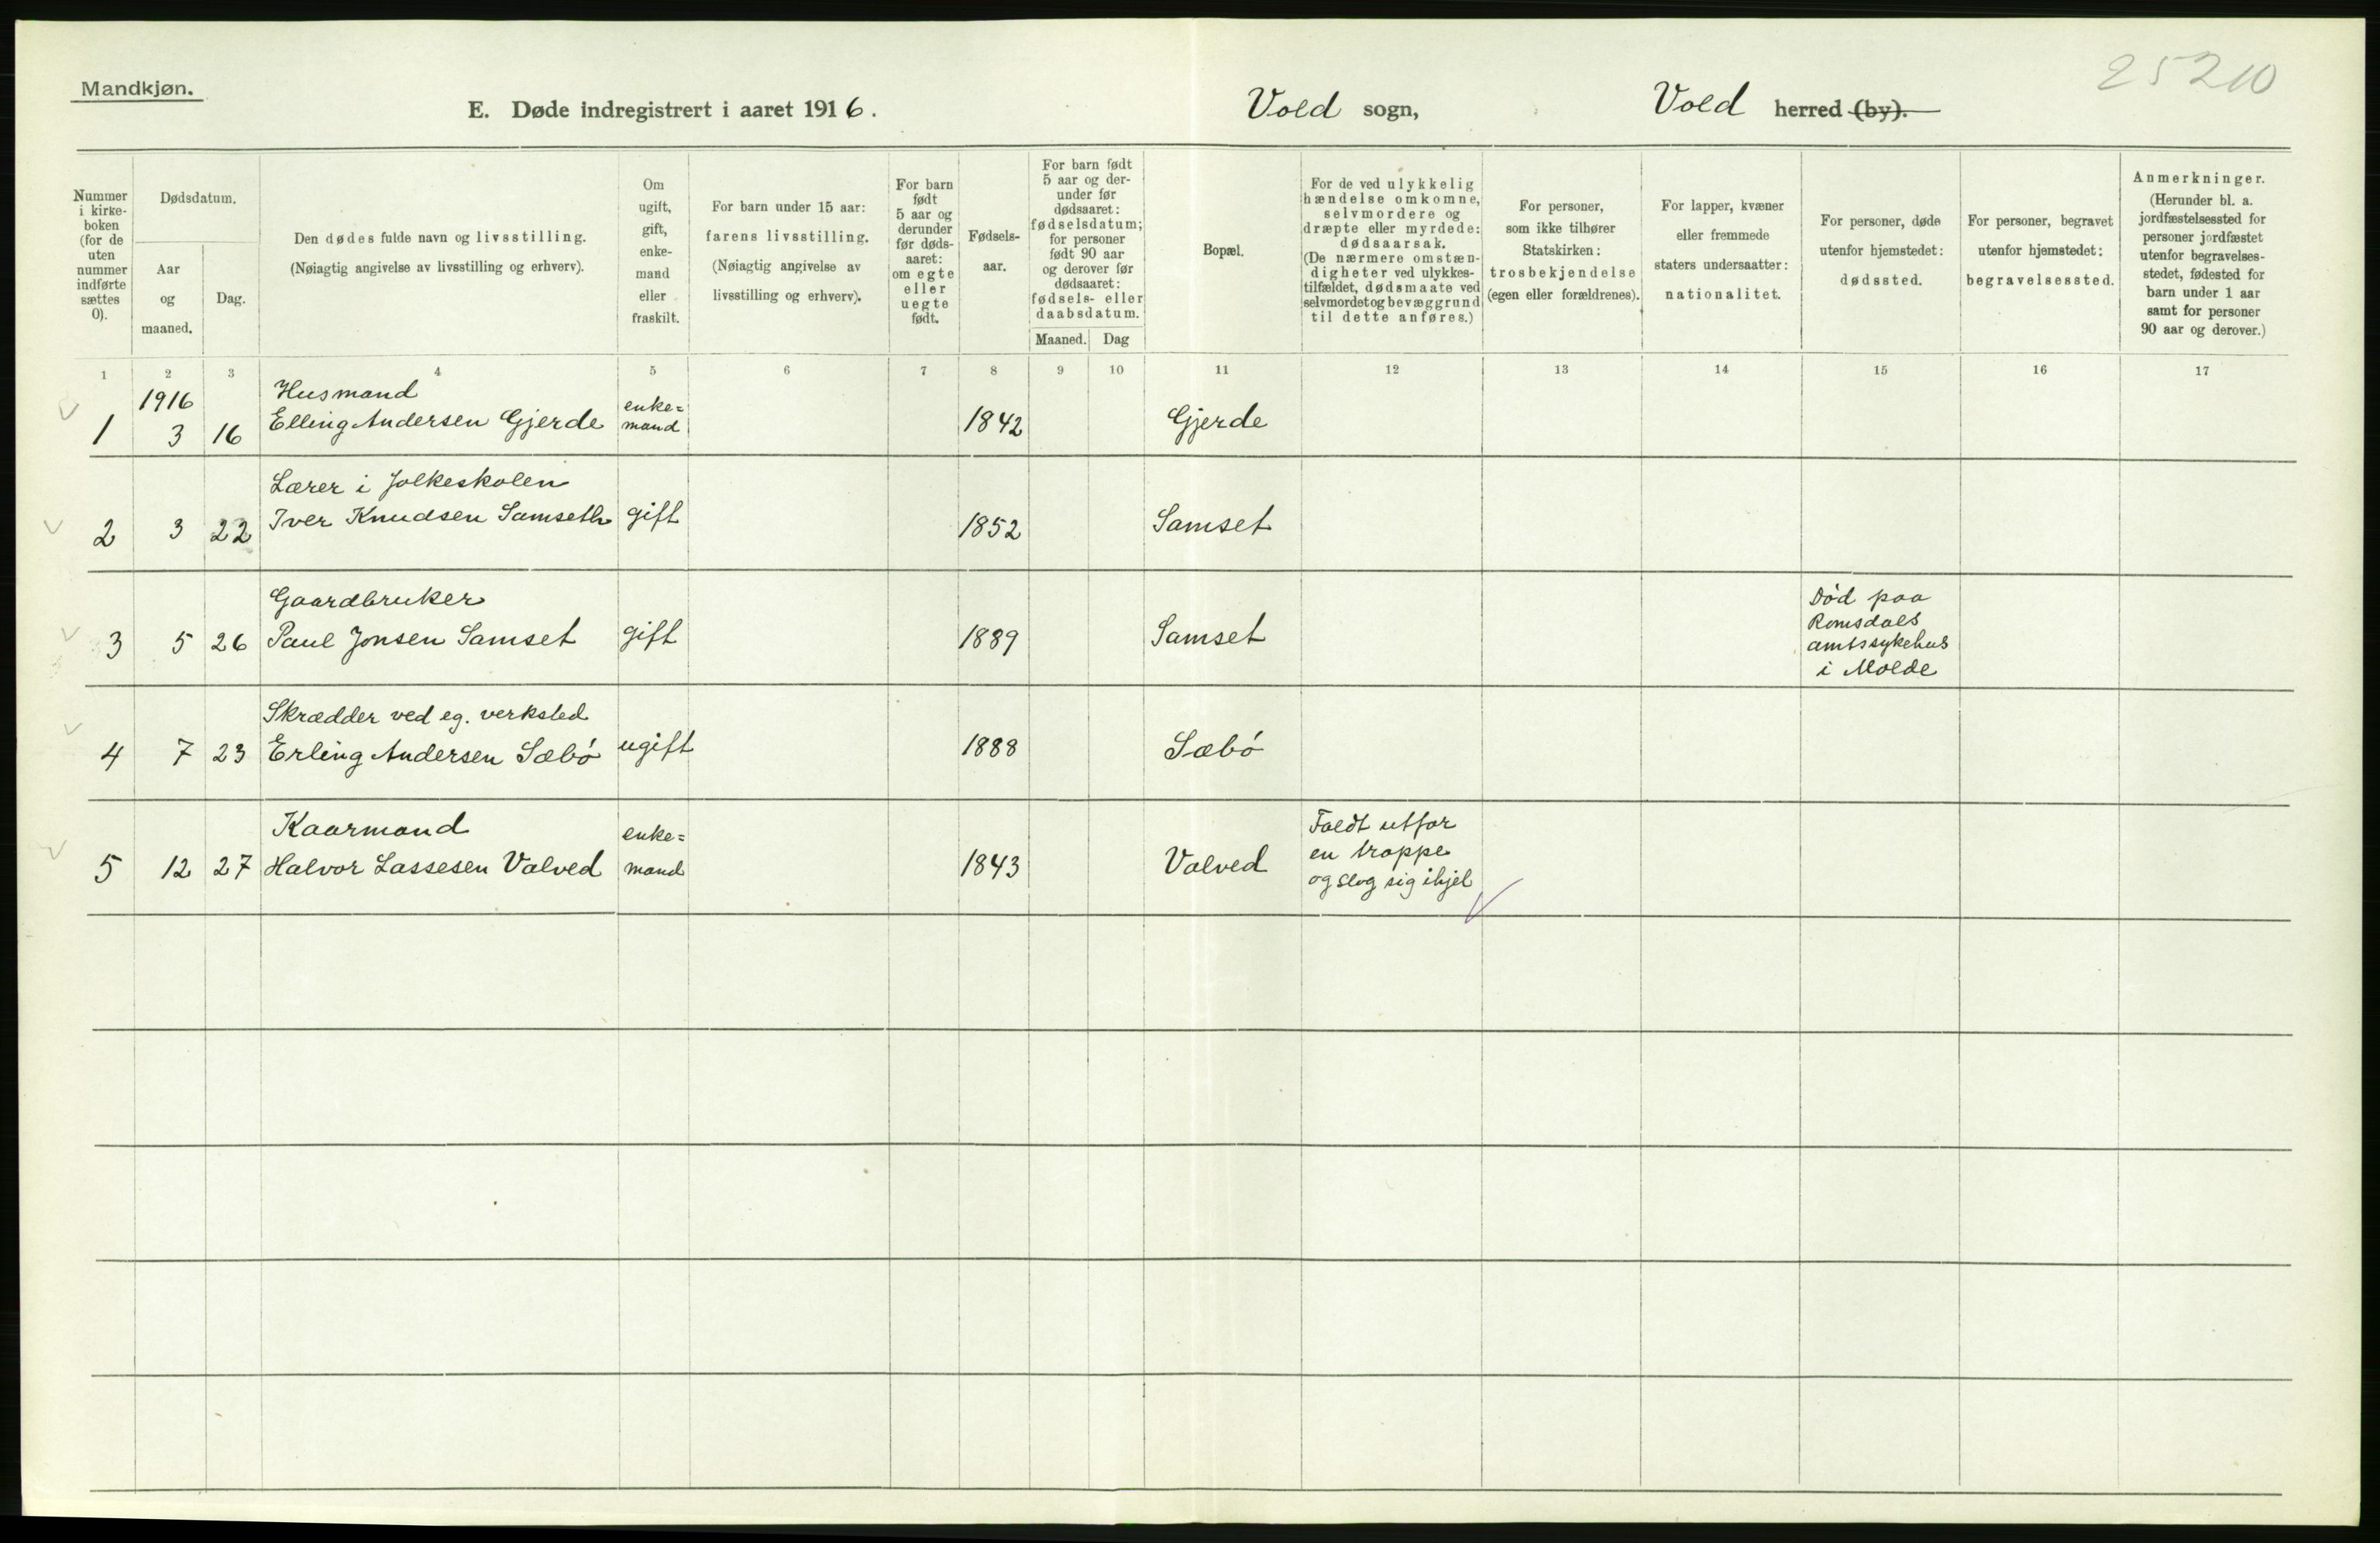 25210
Mandkjøn.
E. Døde indregistrert i aaret 1916. Vold sogn, Vold herred (by).
Nummer
i kirke-
boken
(for de
uten
nummer
indførte
sættes
0).
Dødsdatum.
Aar
og
maaned.
Dag.
Den dødes fulde navn og livsstilling.
(Nøiagtig angivelse av livsstilling og erhverv).
Om
ugift,
gift,
enke-
mand
eller
fraskilt.
For barn under 15 aar:
farens livsstilling.
(Nøiagtig angivelse av
livsstilling og erhverv).
For barn
født
5 aar og
derunder
før døds-
aaret:
om egte
eller
uegte
født.
Fødsels-
aar.
For barn født
5 aar og der-
under før
dødsaaret:
fødselsdatum;
for personer
født 90 aar
og derover før
dødsaaret:
fødsels- eller
daabsdatum.
Maaned. Dag
Bopæl.
For de ved ulykkelig
hændelse omkomne,
selvmordere og
dræpte eller myrdede:
dødsaarsak.
(De nærmere omstæn-
digheter ved ulykkes-
tilfældet, dødsmaate ved
selvmordet og bevæggrund
til dette anføres.)
For personer,
som ikke tilhører
Statskirken:
trosbekjendelse
(egen eller forældrenes).
For lapper, kvæner
eller fremmede
staters undersaatter:
nationalitet.
For personer, døde
utenfor hjemstedet:
dødssted.
For personer, begravet
utenfor hjemstedet:
begravelsessted.
Anmerkninger.
(Herunder bl. a.
jordfæstelsessted for
personer jordfæstet
utenfor begravelses-
stedet, fødested for
barn under 1 aar
samt for personer
90 aar og derover.)
1 2 3 4 5 6 7 8 9 10 11 12 13 14 15 16 17
1916 Husmand enke=
1 3 16 Elling Andersen Gjerde mand 1842 Gjerde
Lærer i folkeskolen
2 3 22 Iver Knudsen Samseth gift 1852 Samset
Gaardbruker
3 5 26 Paul Jonsen Samset gift 1889 Samset
Død paa
Romsdals
amtssykehus
i Molde
Skrædder ved eg. verksted
4 7 23 Erling Andersen Sæbó ugift 1888 Sæbó
Kaarmand enke=
5 12 27 Halvor Lassesen Valved mand 1843 Valved
Faldt utfor
en trappe
og slog sig ihjel